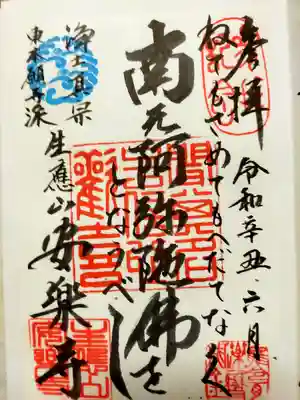 参拝
令和辛丑・六月
ねてもさめてもへだてなく
南无阿弥陀佛を
となうべし
浄土真宗
東本願寺派
生應山安楽寺